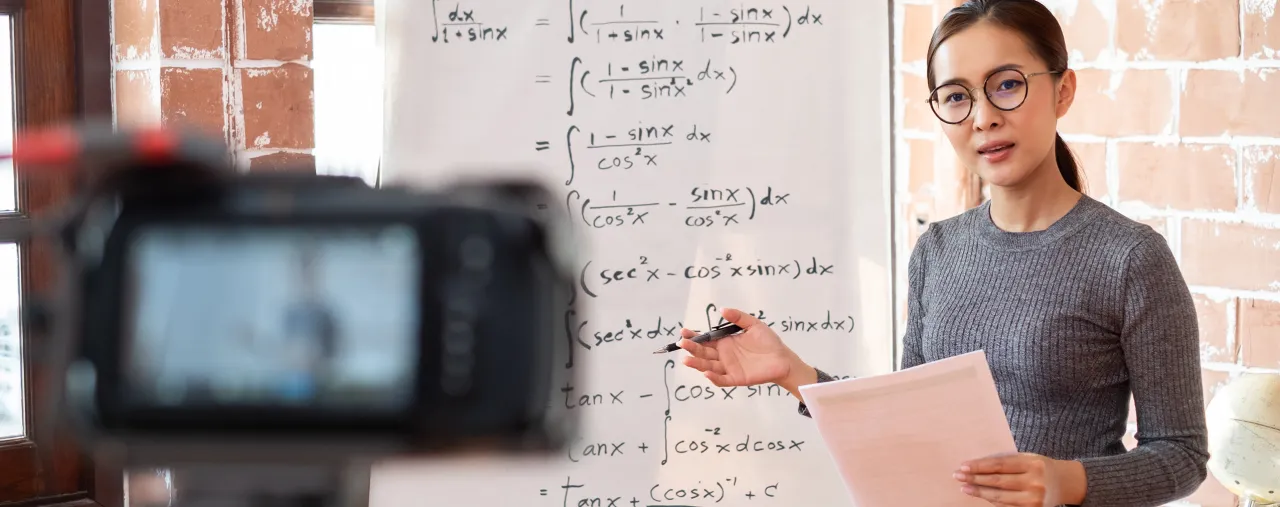 ∫ dx/(1+sinx) = ∫( 1/(1+sinx) · (1-sinx)/(1-sinx) ) dx
= ∫( (1-sinx)/(1-sin²x²) dx)
= ∫ (1-sinx)/(cos²x) dx
= ∫( 1/(cos²x) - sinx/(cos²x) ) dx
(sec²x - cos⁻²x sinx) dx
∫(sec²x dx) ∫ ⁻²x sinx dx)
tanx - ∫cosx sin
tanx + ∫cos⁻²x dcosx
= tanx + (cosx)⁻¹ + c